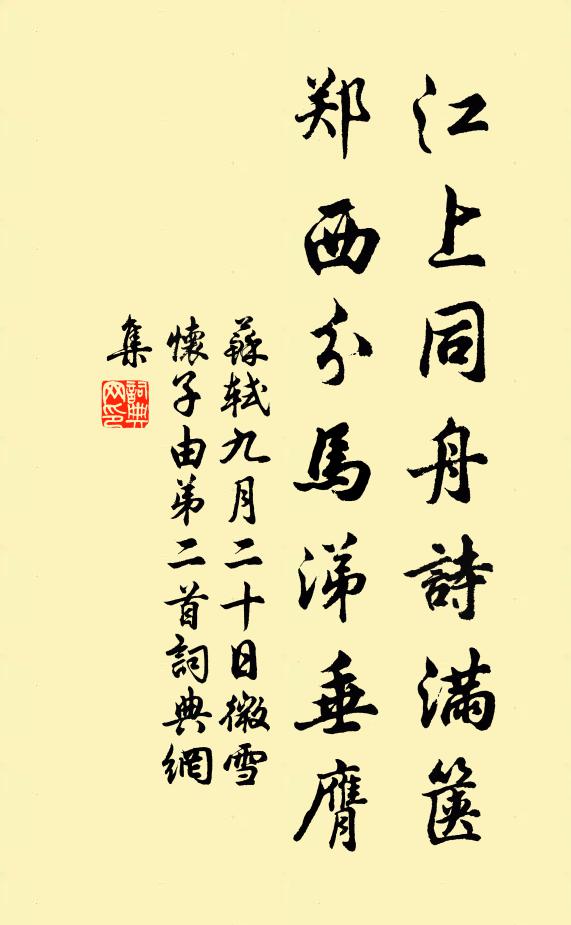 江上同舟詩滿篋
郑西分馬涕垂膺
蘇軾九月二十日微雪
懷子由弟二首詞典網
集
詞典
网印